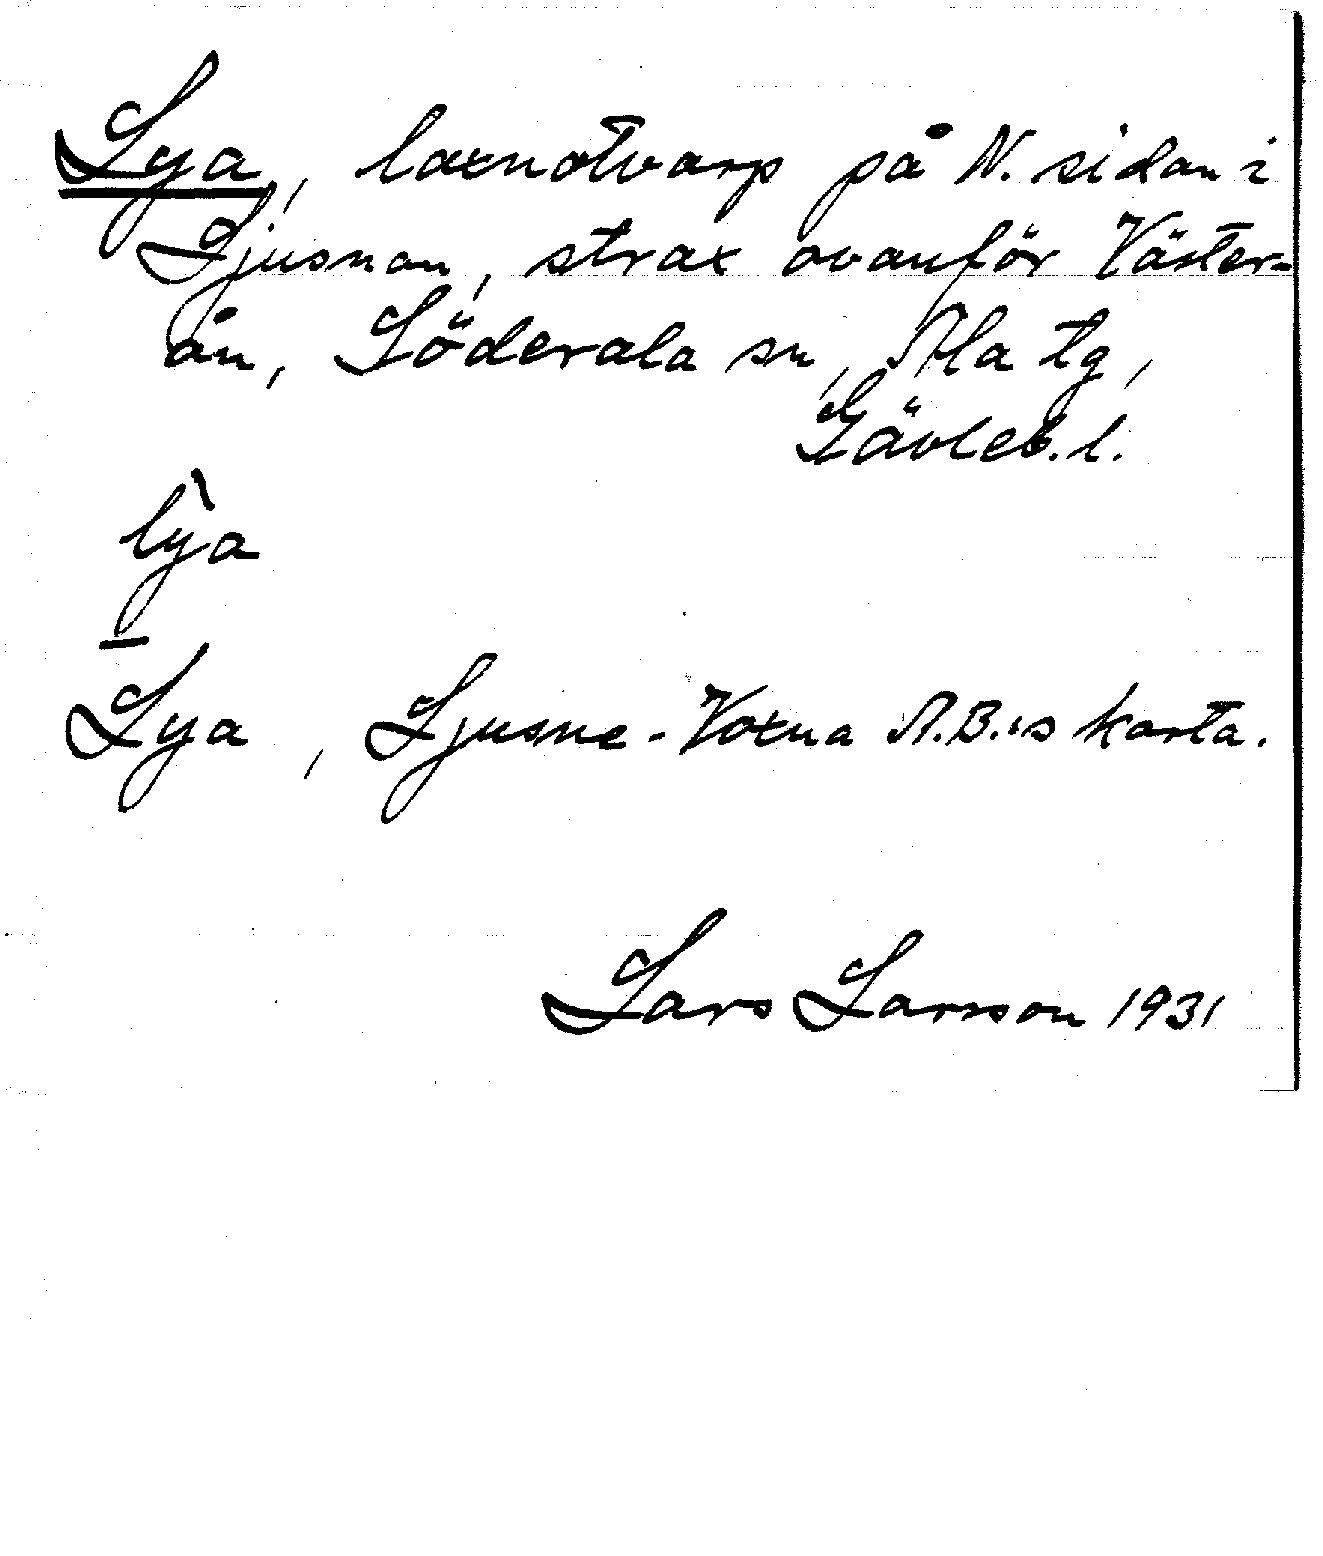 Lya, laxnotvarp på N. sidan i
Ljusnan, strax ovanför Väster-
ån, Söderala sn, Ala tg,
Gävleb. l.
lỳa
Lya, Ljusne-Voxna A.B.:s karta.
Lars Larsson 1931